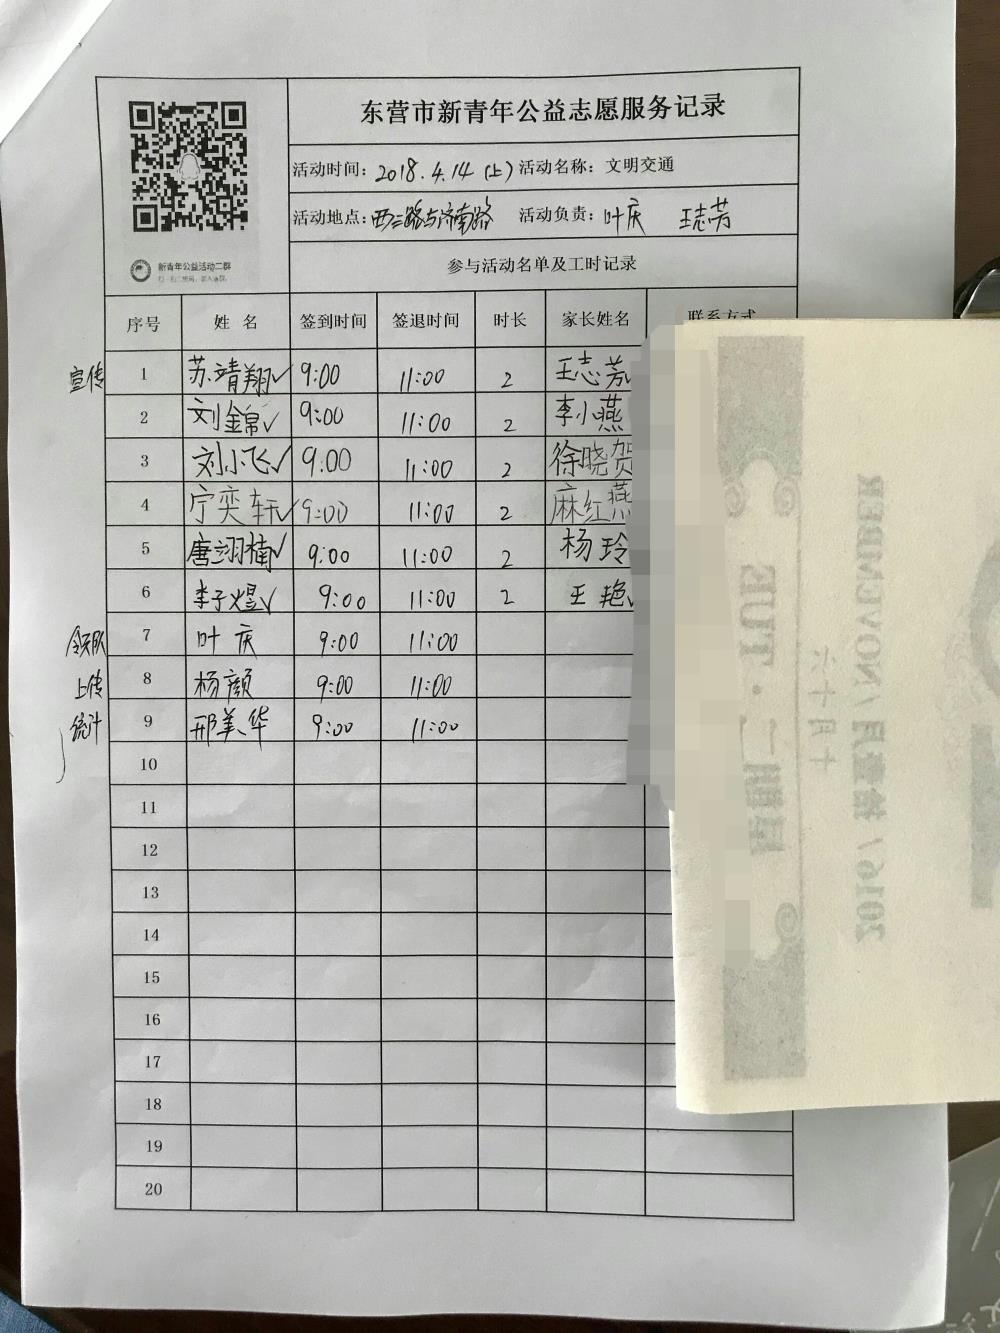 东营市新青年公益志愿服务记录
活动时间：2018.4.14（上）活动名称：文明交通
活动地点：西三路与济南路 活动负责：叶庆 王志芳
新青年公益活动二群
参与活动名单及工时记录
序号 姓名 签到时间 签退时间 时长 家长姓名 联系方式
宣传 1 苏靖翔✓ 9:00 11:00 2 王志芳
2 刘锦帛✓ 9:00 11:00 2 李小燕
3 刘小飞✓ 9:00 11:00 2 徐晓贺
4 宁奕轩✓ 9:00 11:00 2 麻红燕
5 唐翊楠✓ 9:00 11:00 2 杨玲
6 李子煜✓ 9:00 11:00 2 王艳
领队 7 叶庆 9:00 11:00
上传 8 杨颜 9:00 11:00
统计 9 邢美华 9:00 11:00
10
11
12
13
14
15
16
17
18
19
20
星期二·TUE
十月十六
2016/拾壹月/NOVEMBER